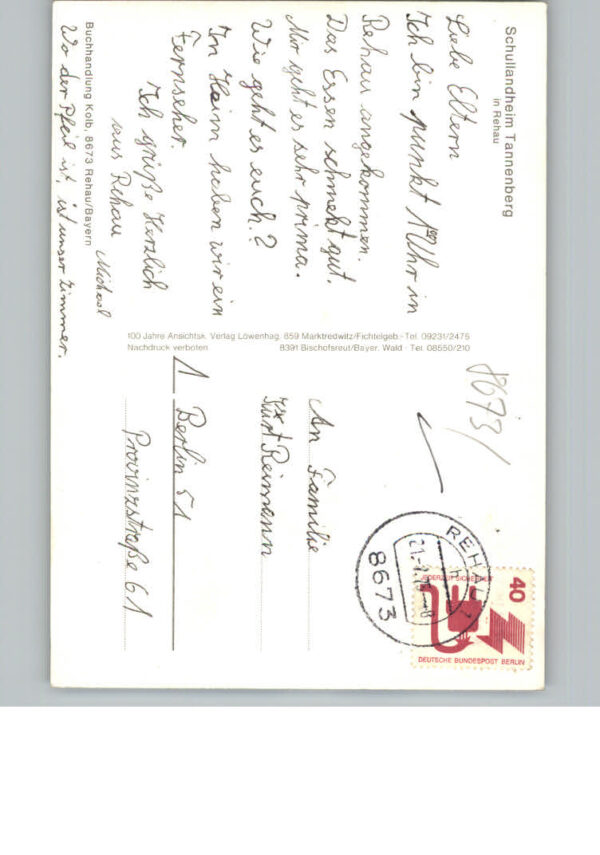 Schullandheim Tannenberg
in Rehau
Liebe Eltern
Ich bin punkt 1 Uhr in
Rehau angekommen.
Das Essen schmekt gut.
Mir geht es sehr prima.
Wie geht es euch?
In Heim haben wir ein
Fernseher.
Ich grüße Herzlich
aus Rehau
Michael
Buchhandlung Kolb, 8673 Rehau/Bayern
Wo der Pfeil ist, ist unser Zimmer.
100 Jahre Ansichtsk. Verlag Löwenhag. 859 Marktredwitz/Fichtelgeb.-Tel. 09231/2475
Nachdruck verboten
8391 Bischofsreut/Bayer. Wald - Tel. 08550/210
8673
An Familie
Kurt Reimann
1 Berlin 51
Provinzstraße 61
REHAU 1
8673
40
JEDERZEIT SICHERHEIT
DEUTSCHE BUNDESPOST BERLIN